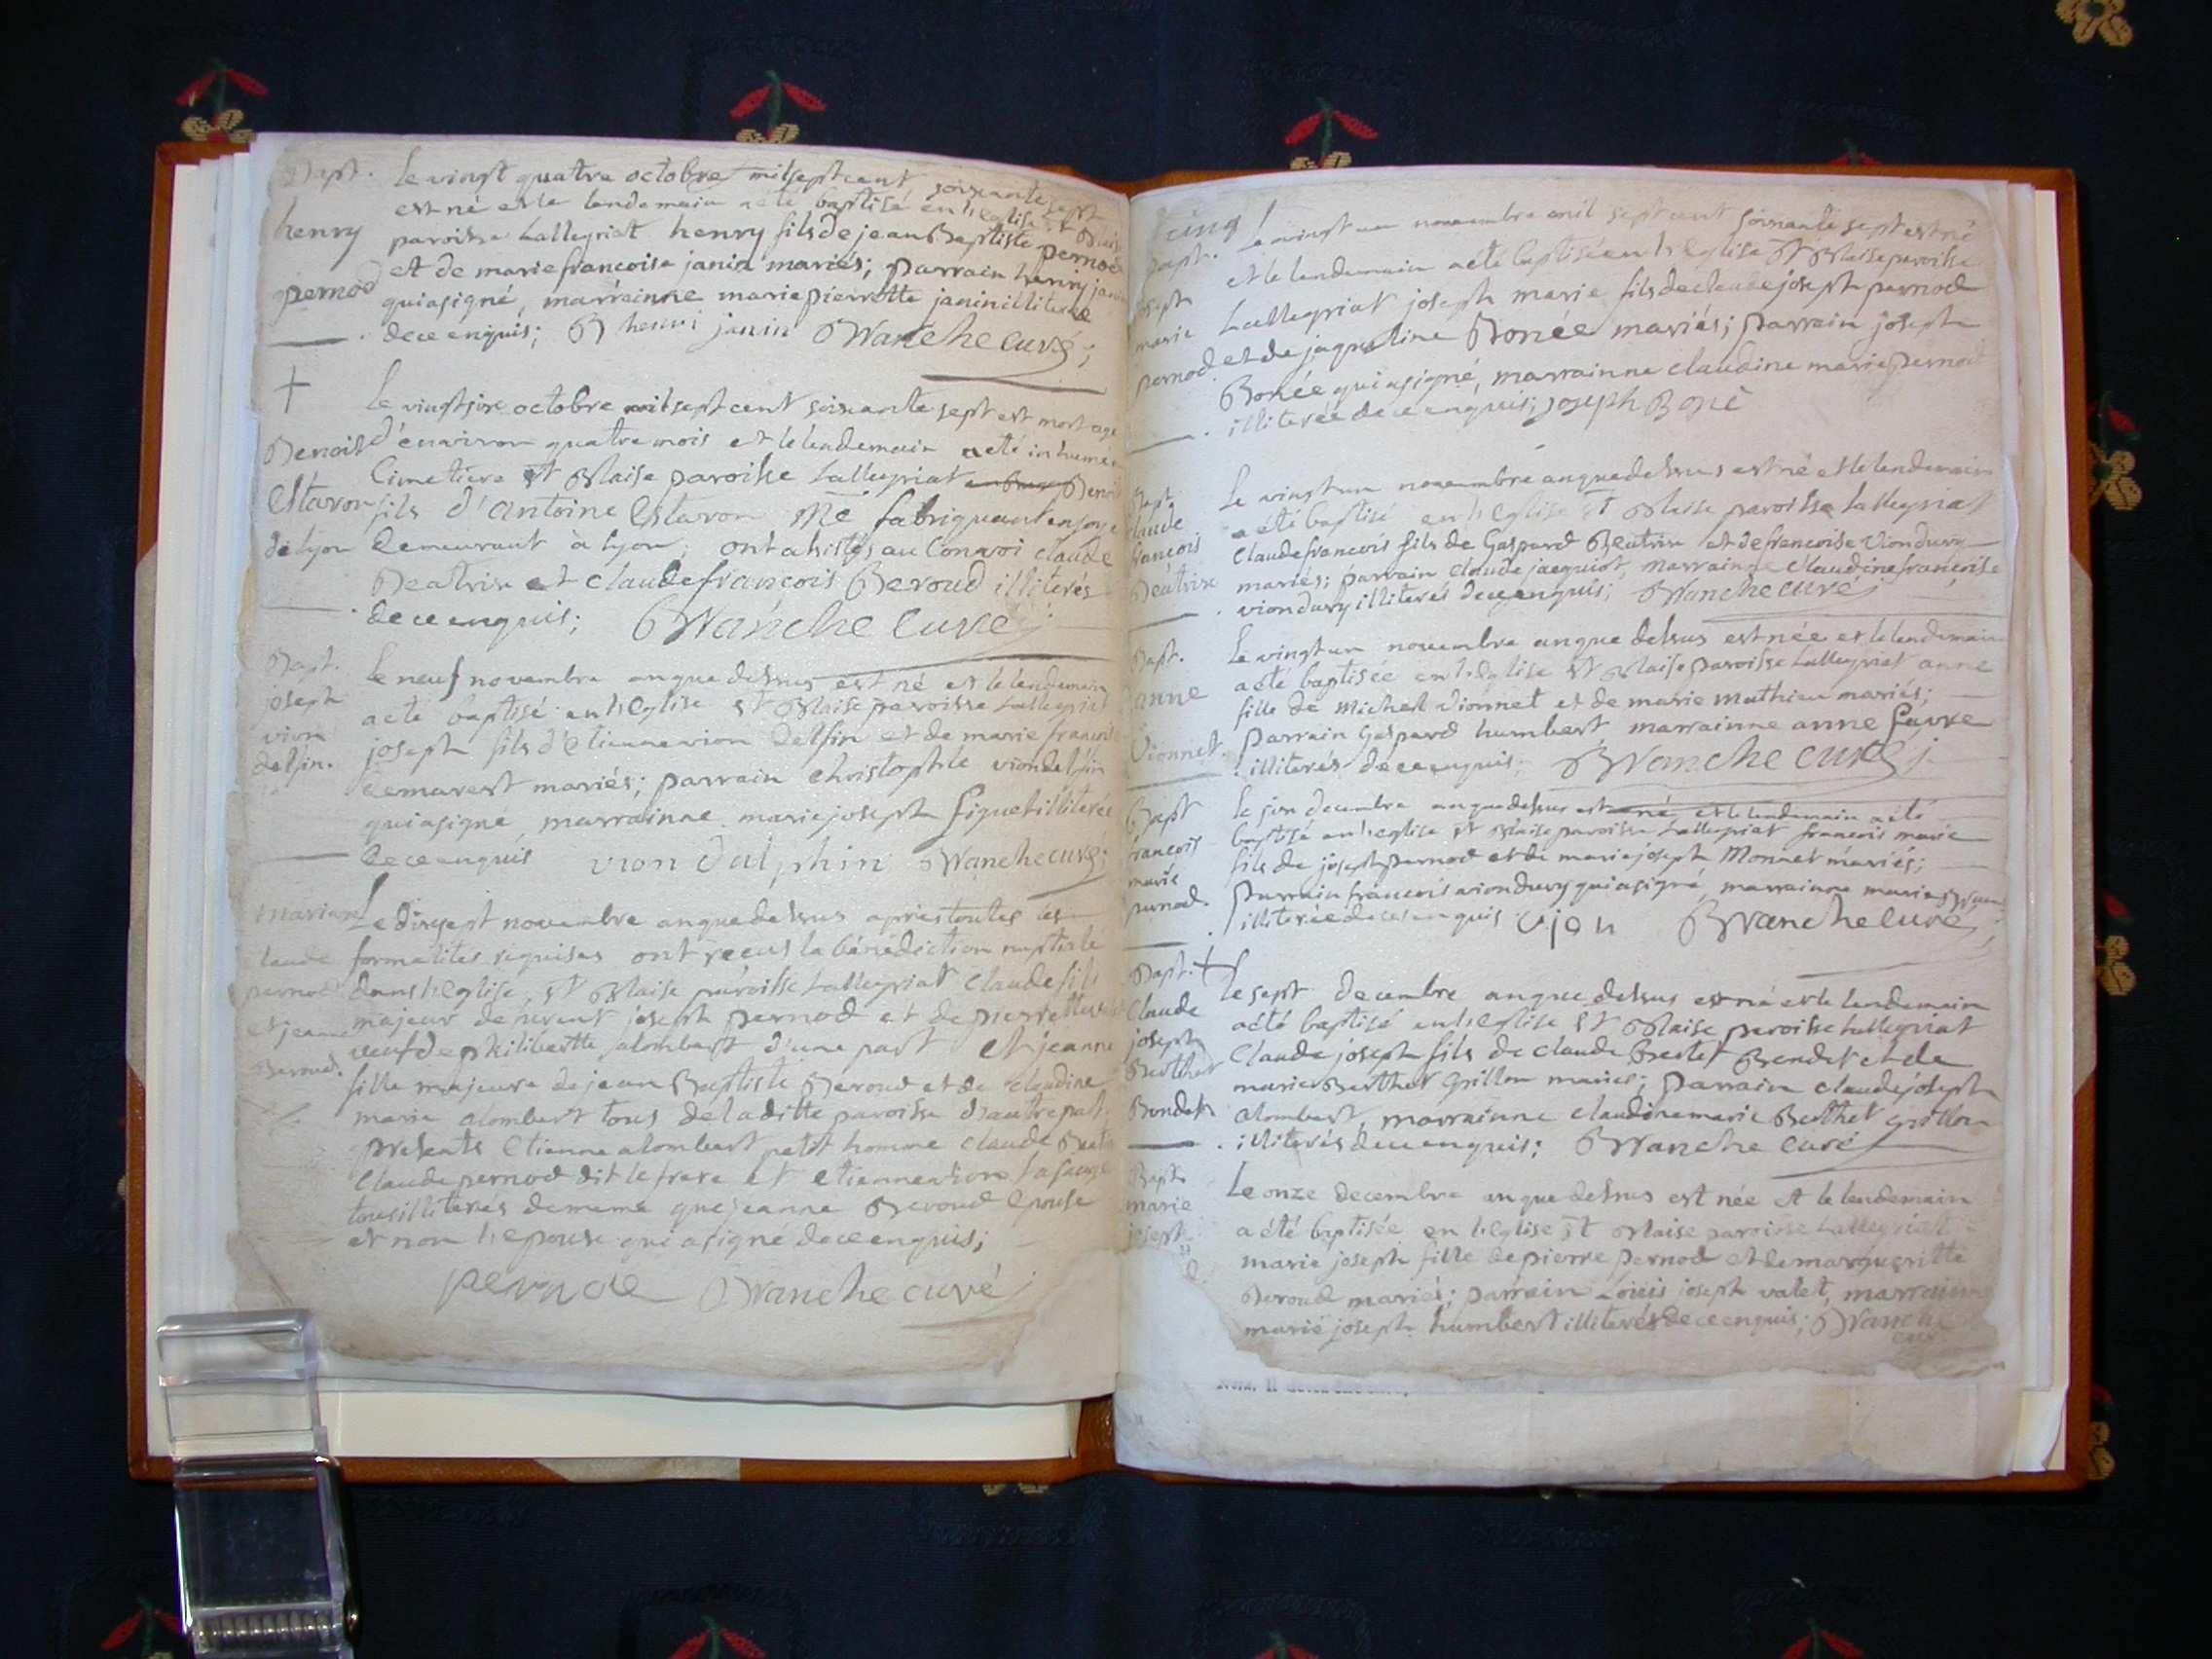 Bapt.
henry
pernod
Le vingt quatre octobre mil sept cent soixante sept
est né et le lendemain a eté baptisé en l'eglise St Blaise
paroisse Lalleyriat henry fils de jean Baptiste pernod
et de marie francoise janin mariés; parrain henry janin
qui a signé, marrainne marie pierrotte janin illiterée
de ce enquis; henri janin Branche curé;
Benoist
Estavon
de lyon
Le vingt six octobre mil sept cent soixante sept est mort agé
d'environ quatre mois et le lendemain a eté inhumé
Cimetiere St Blaise paroisse Lalleyriat Benoit
fils d'antoine Estavon Me fabriquant en soye
demeurant à lyon; ont assistés au Convoi claude
Beatrix et claude francois Beroud illiterés
de ce enquis; Branche Curé
Bapt.
joseph
vion
delfin.
Le neuf novembre an que dessus est né et le lendemain
a eté baptisé en l'eglise St Blaise paroisse Lalleyriat
joseph fils d'Etienne vion delfin et de marie francoise
demarest mariés; parrain christophle vion delfin
qui a signé, marrainne marie joseph figuet illiterée
de ce enquis vion dalphin Branche curé;
mariage
claude
pernod
et jeanne
Beroud.
Le dix sept novembre an que dessus apres toutes les
formalités requises ont reçus la bénédiction nuptiale
dans l'eglise St Blaise paroisse Lalleyriat Claude fils
majeur de joseph pernod et de pierrette
veuf de philiberte alombert d'une part et jeanne
fille majeure de jean Baptiste Beroud et de claudine
marie alombert tous de laditte paroisse d'autre part
presents Etienne alombert petit homme claude
Claude pernod dit le frere et etienne vion
tous illiterés de meme que jeanne Beroud epouse
et non l'epoux qui a signé de ce enquis;
pernod Branche curé
cinq
Bapt.
joseph
marie
pernod
Le vingt un novembre mil sept cent soixante sept est né
et le lendemain a eté baptisé en l'eglise St Blaise paroisse
Lalleyriat joseph marie fils de claude joseph pernod
et de jaqueline Bonée mariés; parrain joseph
Bonée qui a signé, marrainne claudine marie pernod
illiterée de ce enquis; joseph Boné
Bapt.
claude
francois
Beatrix
Le vingt un novembre an que dessus est né et le lendemain
a eté baptisé en l'eglise St Blaise paroisse Lalleyriat
Claude francois fils de Gaspard Beatrix et de francoise Vion dury
mariés; parrain Claude jacquiot, marrainne Claudine francoise
vion dury illiterés de ce enquis; Branche curé;
Bapt.
anne
Vionnet.
Le vingt un novembre an que dessus est née et le lendemain
a eté baptisée en l'eglise St Blaise paroisse Lalleyriat anne
fille de Michel Vionnet et de marie mathieu mariés;
parrain Gaspard humbert marrainne anne favre
illiterés de ce enquis; Branche curé;
Bapt
francois
marie
pernod.
Le six decembre an que dessus est né, et le lendemain a eté
baptisé en l'eglise St Blaise paroisse Lalleyriat francois marie
fils de joseph pernod et de marie joseph Monnet mariés;
parrain francois vion dury qui a signé, marrainne marie
illiterée de ce enquis vion Branche Curé
Bapt.
Claude
joseph
Berthet
Bondet
Le sept decembre an que dessus est né et le lendemain
a eté baptisé en l'eglise St Blaise paroisse Lalleyriat
Claude joseph fils de claude Bertet Bondet et de
marie Berthet Grillon mariés; parrain claude joseph
alombert, marrainne claudine marie Berthet grillon
illiterés de ce enquis; Branche Curé
Bapt
marie
joseph
Le onze decembre an que dessus est née et le lendemain
a été baptisée en l'eglise St Blaise paroisse Lalleyriat
marie joseph fille de pierre pernod et de margueritte
Beroud mariés; parrain Louis joseph valet, marrainne
marie joseph humbert illiterés de ce enquis; Branche
curé